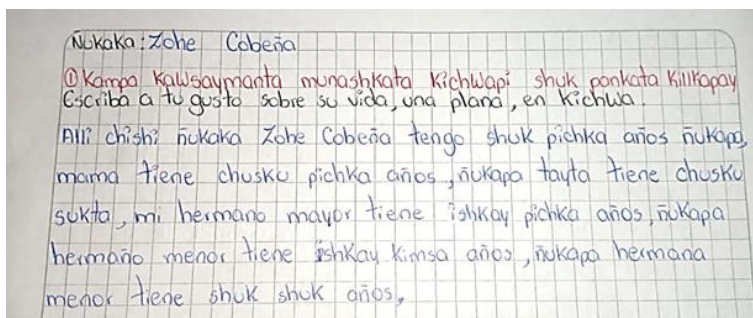 Ñukaka: Zohe Cobeña
① Kampa Kawsaymanta munashkata Kichwapi shuk pankata Killkapay
Escriba a tu gusto sobre su vida, una plana, en Kichwa.
Alli chishi ñukaka Zohe Cobeña tengo shuk pichka años ñukapa,
mama tiene chusku pichka años, ñukapa tayta tiene chusku
sukta, mi hermano mayor tiene ishkay pichka años, ñukapa
hermaño menor tiene ishkay kimsa años, ñukapa hermana
menor tiene shuk shuk años,